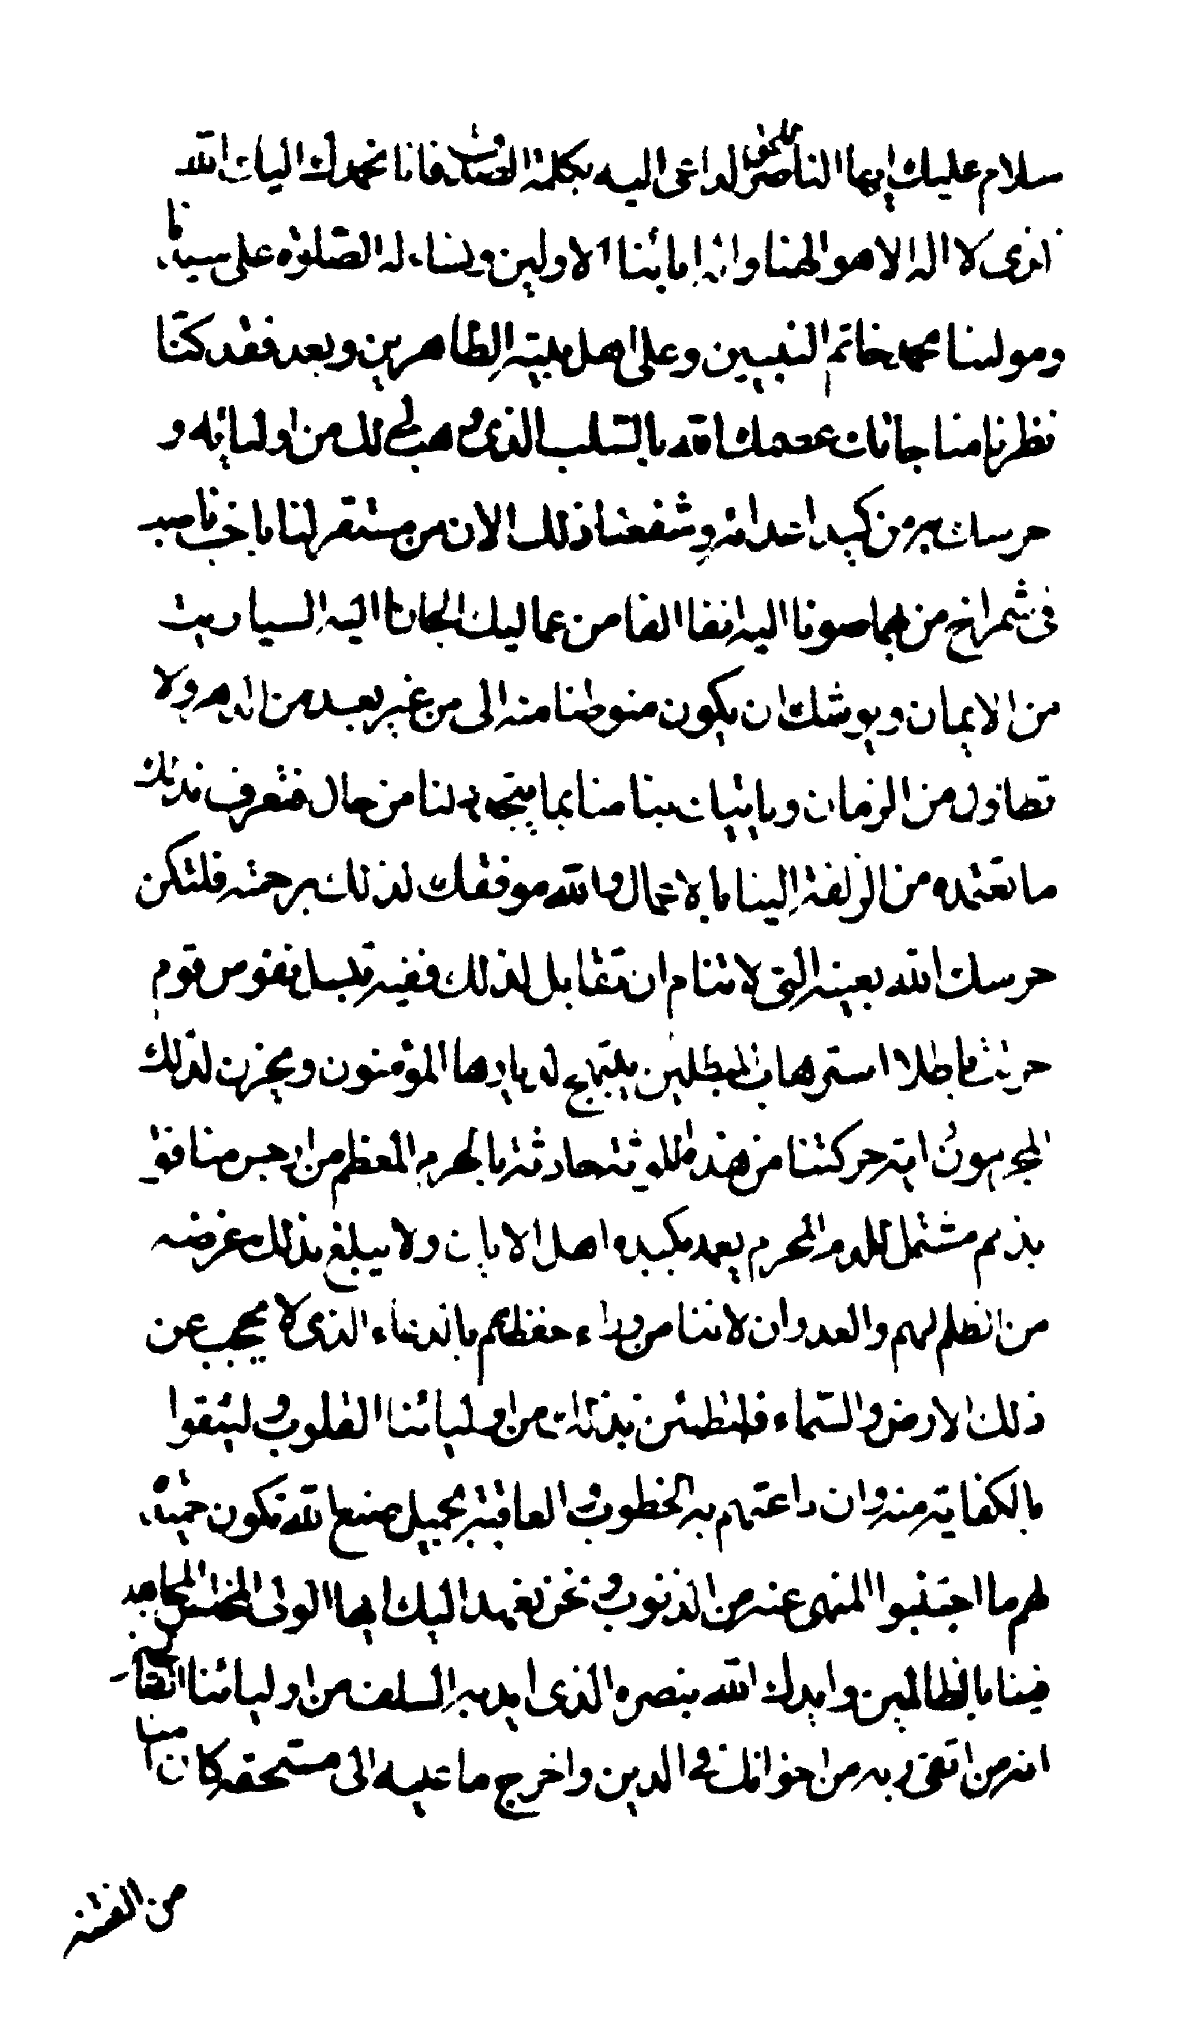 سلام عليك ايها الناصر للحق الداعى اليه بكلمة الصدق فانا نحمد اليك الله
الذى لا اله الا هو الهنا واله ابائنا الاولين ونسئله الصلوة على سيدنا
ومولينا محمد خاتم النبيين وعلى اهل بيته الطاهرين وبعد فقد كنا
نظرنا مناجاتك عصمك الله بالسبب الذى وهبه لك من اوليائه و
حرسك به من كيد اعدائه وشفعنا ذلك الان من مستقر لنا ناصب
فى شمراخ من بهماء صرنا اليه انفا من عماليك الجانا اليه السباريت
من الايمان ويوشك ان يكون هبوطنا منه الى من غير بعد من الدهر ولا
تطاول من الزمان وياتيك نبأ منا بما يتجدد لنا من حال فتعرف بذلك
ما تعتمده من الزلفة الينا بالاعمال والله موفقك لذلك برحمته فلتكن
حرسك الله بعينه التى لا تنام ان تقابل لذلك ففيه تبسل نفوس قوم
حرثت باطلا لاسترهاب المبطلين يبتهج لدمارها المؤمنون ويحزن لذلك
المجرمون اية حركتنا من هذه اللوثة حادثة بالحرم المعظم من رجس منافق
مذمم مستحل للدم المحرم يعمد بكيده اهل الايمان ولا يبلغ بذلك غرضه
من الظلم لهم والعدوان لاننا من وراء حفظهم بالدعاء الذى لا يحجب عن
ذلك الارض والسماء فليطمئن بذلك من اوليائنا القلوب وليثقوا
بالكفاية منه وان راعتهم به الخطوب والعاقبة بجميل صنع الله تكون حميدة
لهم ما اجتنبوا المنهى عنه من الذنوب ونحن نعهد اليك ايها الولى المخلص المجاهد
فينا الظالمين وايدك الله بنصره الذى ايد به السلف من اوليائنا الصالحين
انه من اتقى ربه من اخوانك فى الدين واخرج ما عليه الى مستحقه كان امنا
من الفتنة